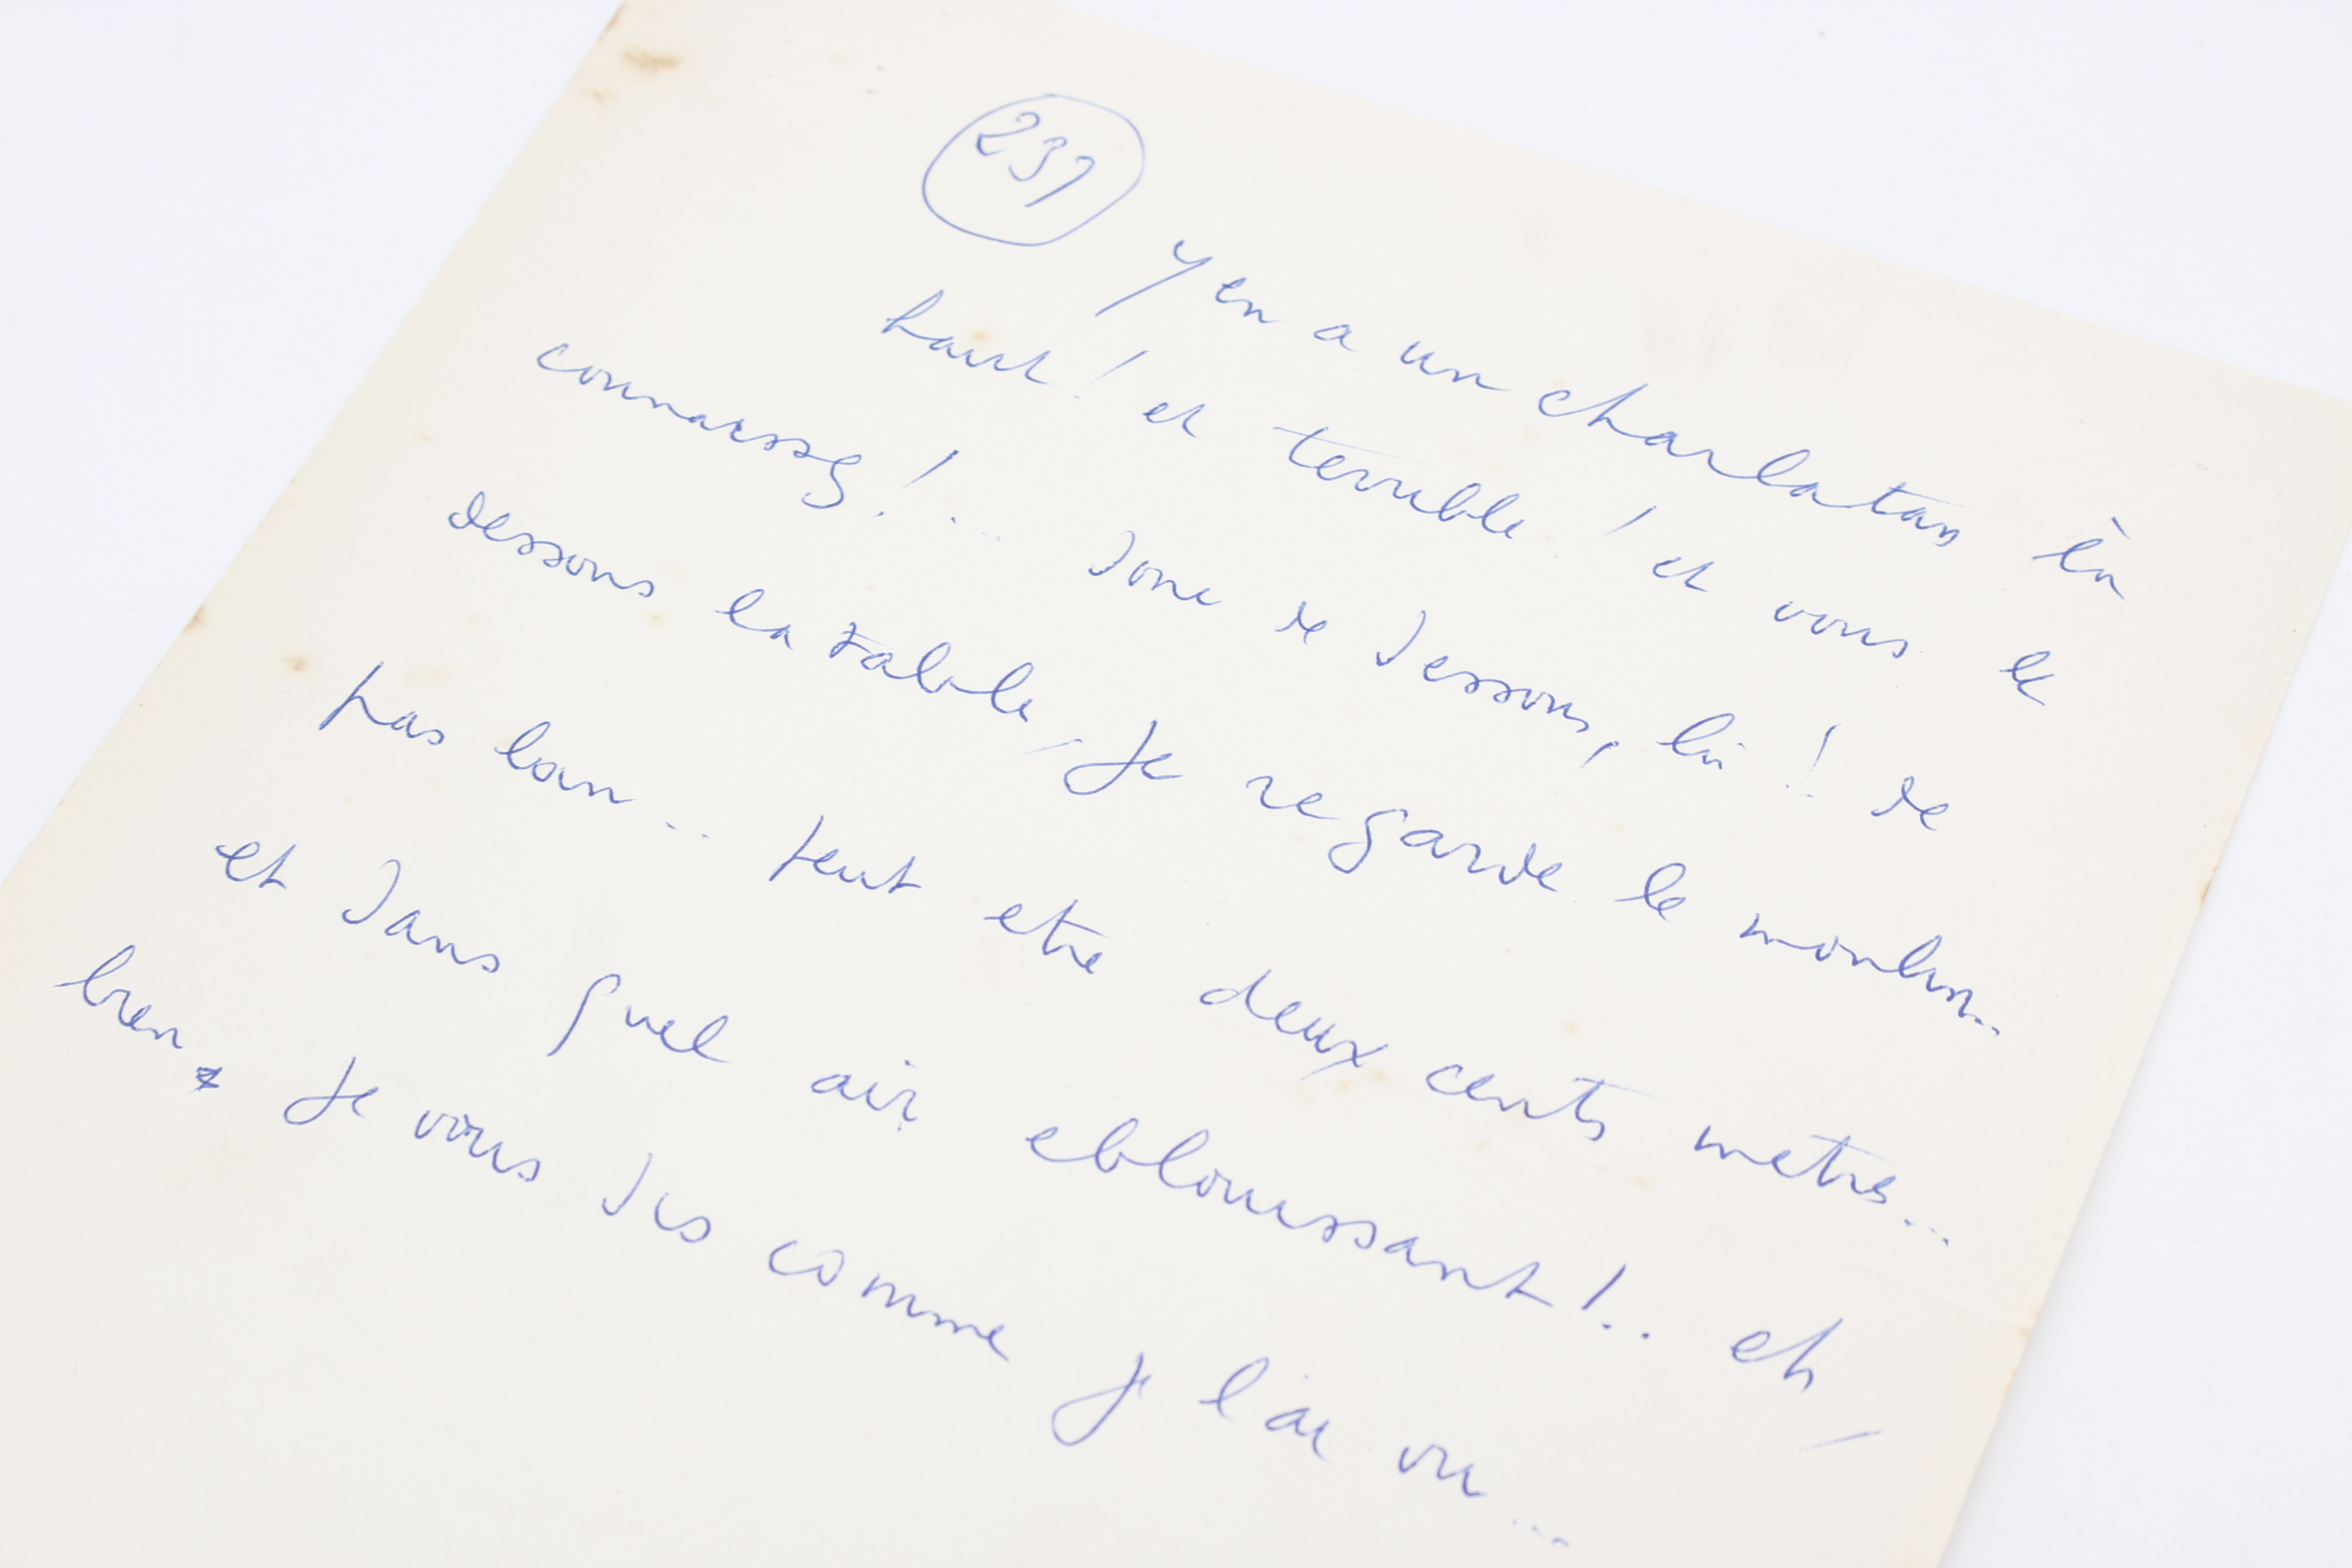 237
Yen a un charlatan là
haut ! et terrible ! et vous le
connaissez !... donc de dessous, là ! de
dessous la table, je regarde le moulin...
pas loin... peut etre deux cents metres...
et dans quel air eblouissant !.. eh
bien je vous dis comme je l'ai vu...